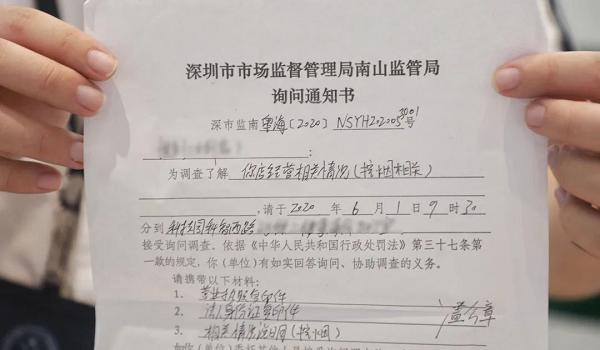 深圳市市场监督管理局南山监管局
询问通知书
深市监南粤海〔2020〕NSYH2020053001号
:
为调查了解 你店经营相关情况(控烟相关)
,请于 2020 年 6 月 1 日 9 时 30
分到 科技园科智西路
接受询问调查。依据《中华人民共和国行政处罚法》第三十七条第
一款的规定,你(单位)有如实回答询问、协助调查的义务。
请携带以下材料:
1. 营业执照复印件
2. 法人身份证复印件 盖公章
3. 相关情况说明(控烟)